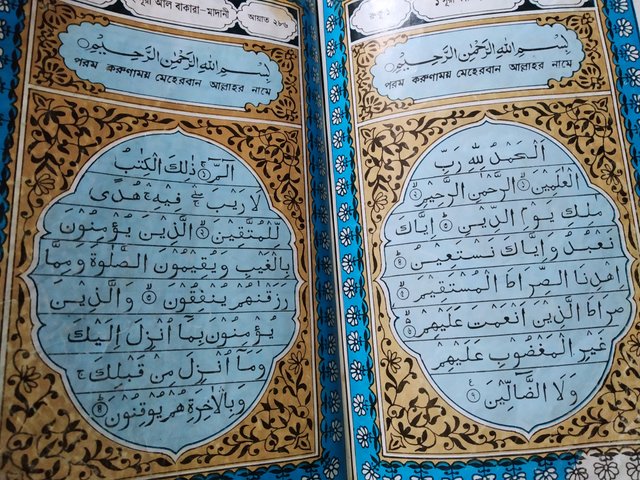 بِسْمِ اللّٰهِ الرَّحْمٰنِ الرَّحِيْمِ
পরম করুণাময় মেহেরবান আল্লাহর নামে
اَلْحَمْدُ لِلّٰهِ رَبِّ
الْعٰلَمِيْنَ ۝ الرَّحْمٰنِ الرَّحِيْمِ ۝
مٰلِكِ يَوْمِ الدِّيْنِ ۝ اِيَّاكَ
نَعْبُدُ وَاِيَّاكَ نَسْتَعِيْنُ ۝
اِهْدِنَا الصِّرَاطَ الْمُسْتَقِيْمَ ۝
صِرَاطَ الَّذِيْنَ اَنْعَمْتَ عَلَيْهِمْ ۝
غَيْرِ الْمَغْضُوْبِ عَلَيْهِمْ
وَلَا الضَّآلِّيْنَ ۝
সূরা আল বাকারা–মাদানী আয়াত ২৮৬
بِسْمِ اللّٰهِ الرَّحْمٰنِ الرَّحِيْمِ
পরম করুণাময় মেহেরবান আল্লাহর নামে
الٓمّٓ ۝ ذٰلِكَ الْكِتٰبُ
لَا رَيْبَ ۛ فِيْهِ ۛ هُدًى
لِّلْمُتَّقِيْنَ ۝ الَّذِيْنَ يُؤْمِنُوْنَ
بِالْغَيْبِ وَيُقِيْمُوْنَ الصَّلٰوةَ وَمِمَّا
رَزَقْنٰهُمْ يُنْفِقُوْنَ ۝ وَالَّذِيْنَ
يُؤْمِنُوْنَ بِمَآ اُنْزِلَ اِلَيْكَ
وَمَآ اُنْزِلَ مِنْ قَبْلِكَ ۚ
وَبِالْاٰخِرَةِ هُمْ يُوْقِنُوْنَ ۝